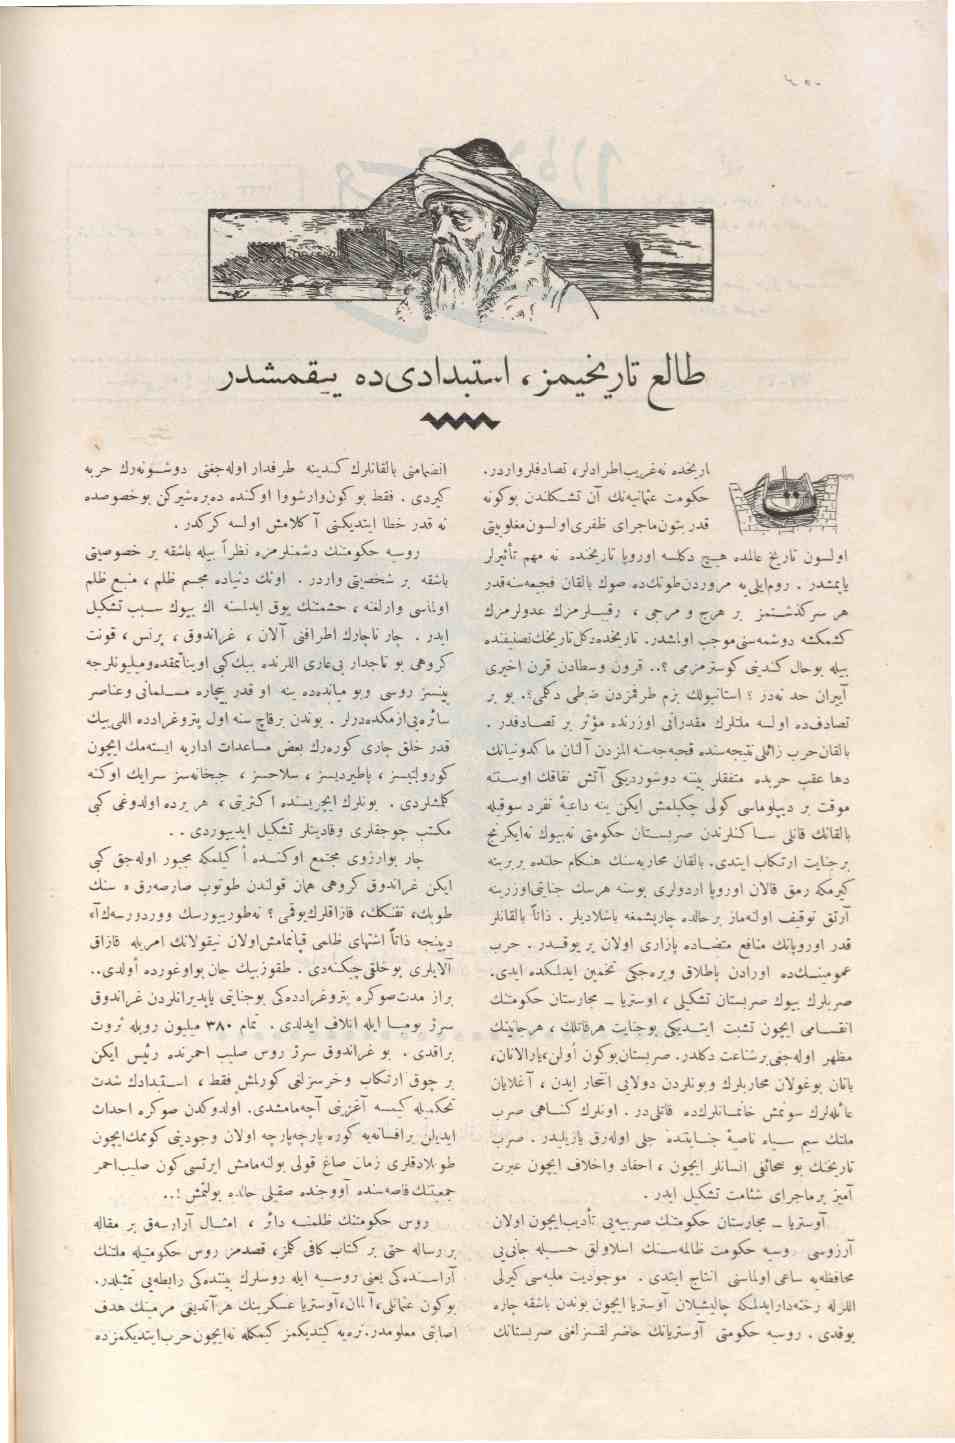 طالع تاریخیمز، استبدادی‌ده ییقمشدر
تاریخده نه‌غریب اطرادلر، تصادفلر واردر.
حکومت عثمانیه‌نك آن تشکلندن بوکونه
قدر بتون ماجرای ظفری اولسون مغلوبیتی
اولسون تاریخ عالمده هیچ دکلسه اوروپا تاریخنده نه مهم تأثیرلر
یاپمشدر . روم‌ایلی‌یه مروردن طوتك‌ده صوك بالقان فجیعه‌سنه‌قدر
هر سرکذشتمز بر هرج و مرجی ، رقیبلرمزك عدولرمزك
کشمکشه دوشمه‌سنی موجب اولمشدر. تاریخده‌دکل تاریخك تصنیفنده
بیله بوحال کندینی کوسترمزمی ؟.. قرون وسطادن قرن اخیری
آییران حد نه‌در ؟ استانبولك بزم طرفمزدن ضبطی دکلمی؟. بو بر
تصادف‌ده اولسه ملتلرك مقدراتی اوزرنده مؤثر بر تصادفدر .
بالقان حرب زائلی نتیجه‌سنده قحبه‌جه‌سنه المزدن آلنان ماکدونیانك
دها عقب حربده متفقلر بیننه دوشوردیکی آتش نفاقك اوستنه
موقت بر دیپلوماسی کولی چکیلمش ایکن ینه داعیهٔ تفرد سوقیله
بالقانك قانلی ساکنلرندن صربستان حکومتی نه‌بیوك نه‌ایکرنج
برجنایت ارتکاب ایتدی. بالقان محاربه‌سنك هنکام حلنده بربرینه
کیرمکه رمق قالان اوروپا اردولری بوسنه هرسك جنایتی‌اوزرینه
آرتق توقیف اولنه‌ماز برحالده چارپشمغه باشلادیلر . ذاتاً بالقانلر
قدر اوروپانك منافع متضاده پازاری اولان یر یوقدر . حرب
عمومینك‌ده اورادن پاطلاق ویره‌جکی تخمین ایدلمکده ایدی.
صربلرك بیوك صربستان تشکیلی ، اوستریا ــ مجارستان حکومتنك
انقسامی ایچون تشبث ایتدیکی بوجنایت هرقاتلك ، هرجانینك
مظهر اوله‌جغی برشناعت دکلدر. صربستان بوکون اولن،یارالانان،
یانان بوغولان محاربلرك وبونلردن دولایی انتحار ایدن ، آغلایان
عائله‌لرك سونمش خانمانلرك‌ده قاتلی‌در . اونلرك کناهی صرب
ملتك سیم سیاه ناصیهٔ جنایتده جلی اوله‌رق یازیلیدر . صرب
تاریخنك بو صحائفی انسانلر ایچون ، احفاد واخلاف ایچون عبرت
آمیز برماجرای شئامت تشکیل ایدر .
آوستریا ــ مجارستان حکومتنك صربیه‌یی تأدیب‌ایچون اولان
آرزوسی روسیه حکومت ظالمه‌سنك اسلاولق حسیله جانی‌یی
محافظه‌یه ساعی اولماسنی انتاج ایتدی . موجودیت ملیه‌سی کیرلی
اللرله رخنه‌دارایدلمکه چالیشیلان آوستریا ایچون بوندن باشقه چاره
یوقدی . روسیه حکومتی آوستریانك حاضرلقسزلغنی صربستانك
انضمامنی بالقانلرك کندینه طرفدار اوله‌جغنی دوشونه‌رك حربه
کیردی . فقط بوکون وارشووا اوکنده ده‌پره‌شیرکن بوخصوصده
نه قدر خطا ایتدیکنی آکلامش اولسه کرکدر .
روسیه حکومتنك دشمنلرمزه نظراً بیله باشقه بر خصوصیتی
باشقه بر شخصیتی واردر . اونك دنیاده مجسم ظلم ، منبع ظلم
اولماسی وارلغنه ، حشمتنك یوق ایدلمسنه اك بیوك سبب تشکیل
ایدر . چار ناچارك اطرافنی آلان ، غراندوق ، پرنس ، قونت
کروهی بو تاجدار بی‌عاری اللرنده ببك کبی اویناتمقده‌ومیلیونلرجه
پینسز روسی وبو میانده‌ده ینه او قدر بیچاره مسلمانی وعناصر
سائره‌یی‌ازمکده‌درلر . بوندن برقاچ سنه اول پتروغرادده اللی‌بیك
قدر خلق چاری کوره‌رك بعض مساعدات اداریه ایسته‌مك ایچون
کورولتیسز ، پاطیردیسز ، سلاحسز ، جبخانه‌سز سرایك اوکنه
کلمشلردی . بونلرك ایچریسنده اکثرتی ، هر یرده اولدوغی کبی
مکتب چوجقلری وقادینلر تشکیل ایدییوردی . .
چار بوارزوی مجتمع اوکنده ا کیلمکه مجبور اوله‌جق کبی
ایکن غراندوق کروهی همان قولندن طوتوب صارصه‌رق « سنك
طوپك، تفنکك، قازاقلرك‌یوقمی ؟ نه‌طورییورسك ووردورسه‌ك‌آ»
دیینجه ذاتاً اشتهای ظلمی قپانمامش‌اولان نیقولانك امریله قازاق
آلایلری بوخلقی چیکنه‌دی . طقوزبیك جان بواوغورده اولدی..
براز مدت‌صوکره پتروغرادده‌کی بوجنایتی یاپدیرانلردن غراندوق
سرژ بومبا ایله اتلاف ایدلدی . تمام ۳۸۰ میلیون روبله ثروت
براقدی . بو غراندوق سرژ روس صلیب احمرنده رئیس ایکن
بر چوق ارتکاب وخرسزلغی کورلمش فقط ، استبدادك شدت
تحکمیله کیمسه آغزینی آچه‌مامشدی. اولدوکدن صوکره احداث
ایدیلن برافسانه‌یه کوره پارچه‌پارچه اولان وجودینی کوممك‌ایچون
طوپلادقلری زمان صاغ قولی بولنه‌مامش ایرتسی کون صلیب‌احمر
جمعیتنك قاصه‌سنده آووجنده صقیلی حالده بولنمش !..
روس حکومتنك ظلمنه دائر ، امثال آرارسه‌ق بر مقاله
بر رساله حتی بر کتاب کافی کلمز، قصدمز روس حکومتیله ملتنك
آراسنده‌کی یعنی روسیه ایله روسلرك بیننده‌کی رابطه‌یی تمثیلدر.
بوکون عثمانلی،آلمان،آوستریا عسکرینك هرآتدیغی مرمینك هدف
اصابتی معلومدر.نره‌یه کیتدیکمز کیمکله نه‌ایچون‌حرب‌ایتدیکمزده